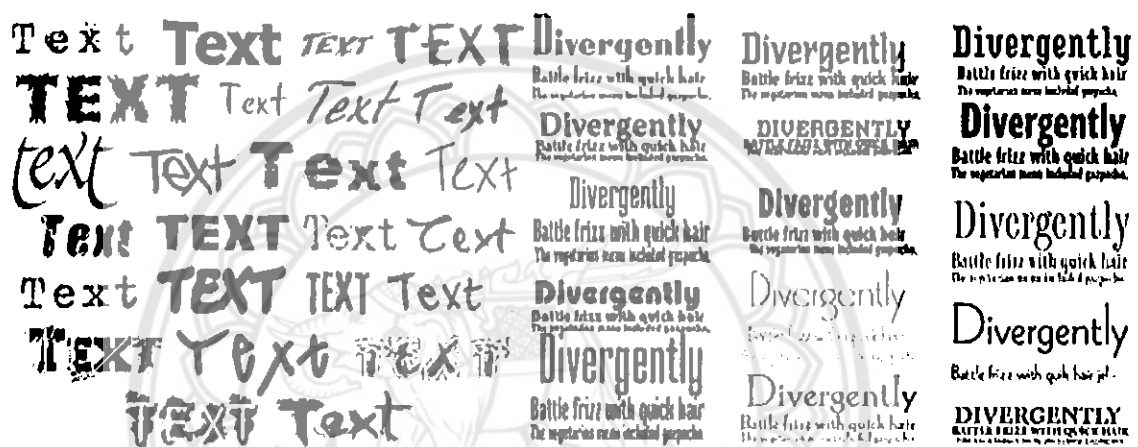 Text Text TEXT TEXT
TEXT Text Text Text
text Text Text Text
Text TEXT Text Text
Text TEXT TEXT Text
TEXT Text TEXT
TEXT Text
Divergently
Battle frizz with quick hair
The vegetarian menu included gazpacho.
Divergently
Battle frizz with quick hair
The vegetarian menu included gazpacho.
Divergently
Battle frizz with quick hair
The vegetarian menu included gazpacho.
Divergently
Battle frizz with quick hair
The vegetarian menu included gazpacho.
Divergently
Battle frizz with quick hair
The vegetarian menu included gazpacho.
Divergently
Battle frizz with quick hair
The vegetarian menu included gazpacho.
DIVERGENTLY
Divergently
Battle frizz with quick hair
The vegetarian menu included gazpacho.
Divergently
Divergently
Battle frizz with quick hair
Divergently
Battle frizz with quick hair
The vegetarian menu included gazpacho.
Divergently
Battle frizz with quick hair
The vegetarian menu included gazpacho.
Divergently
Battle frizz with quick hair
The vegetarian menu included gazpacho.
Divergently
Battle frizz with quick hair
DIVERGENTLY
BATTLE FRIZZ WITH QUICK HAIR